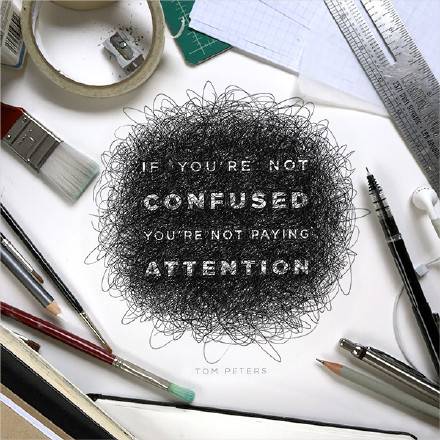 IF YOU'RE NOT
CONFUSED
YOU'RE NOT PAYING
ATTENTION
TOM PETERS